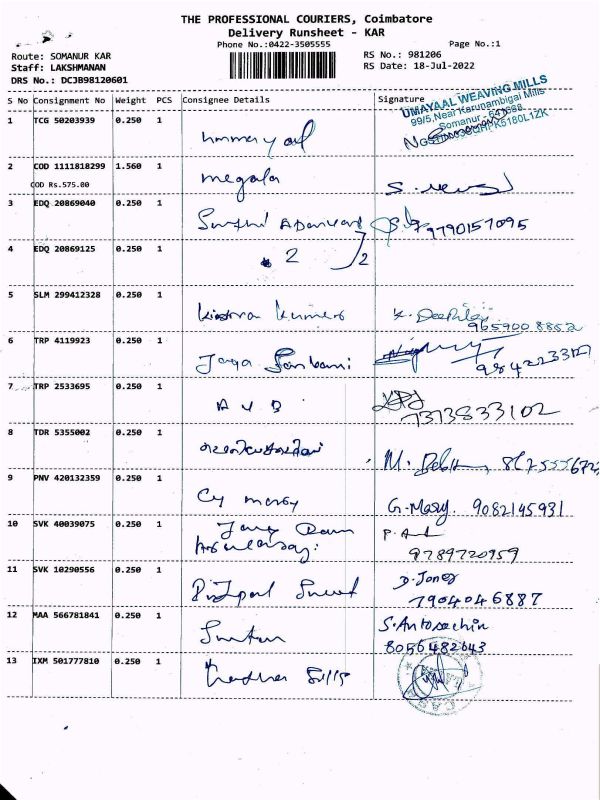 THE PROFESSIONAL COURIERS, Coimbatore
Delivery Runsheet - KAR
Phone No.:0422-3505555
Page No.:1
Route: SOMANUR KAR
RS No.: 981206
Staff: LAKSHMANAN
RS Date: 18-Jul-2022
DRS No.: DCJB98120601
S No Consignment No Weight PCS Consignee Details Signature
UMAYAAL WEAVING MILLS
99/5, Near Karunambigai Mills
Somanur - 641668
1 TCG 50203939 0.250 1
2 COD 1111818299 1.560 1 megala
COD Rs.575.00
3 EDQ 20869040 0.250 1 9790157095
4 EDQ 20869125 0.250 1 2 2
5 SLM 299412328 0.250 1 K. Deepika
965900 8852
6 TRP 4119923 0.250 1 Jaya
9842233127
7 TRP 2533695 0.250 1 A V B
7373833102
8 TDR 5355002 0.250 1 M.
9 PNV 420132359 0.250 1 G. Mary. 9082145931
10 SVK 40039075 0.250 1
9789720959
11 SVK 10290556 0.250 1 D. Jones
7904046887
12 MAA 566781841 0.250 1 S. Antosachin
8056482643
13 IXM 501777810 0.250 1